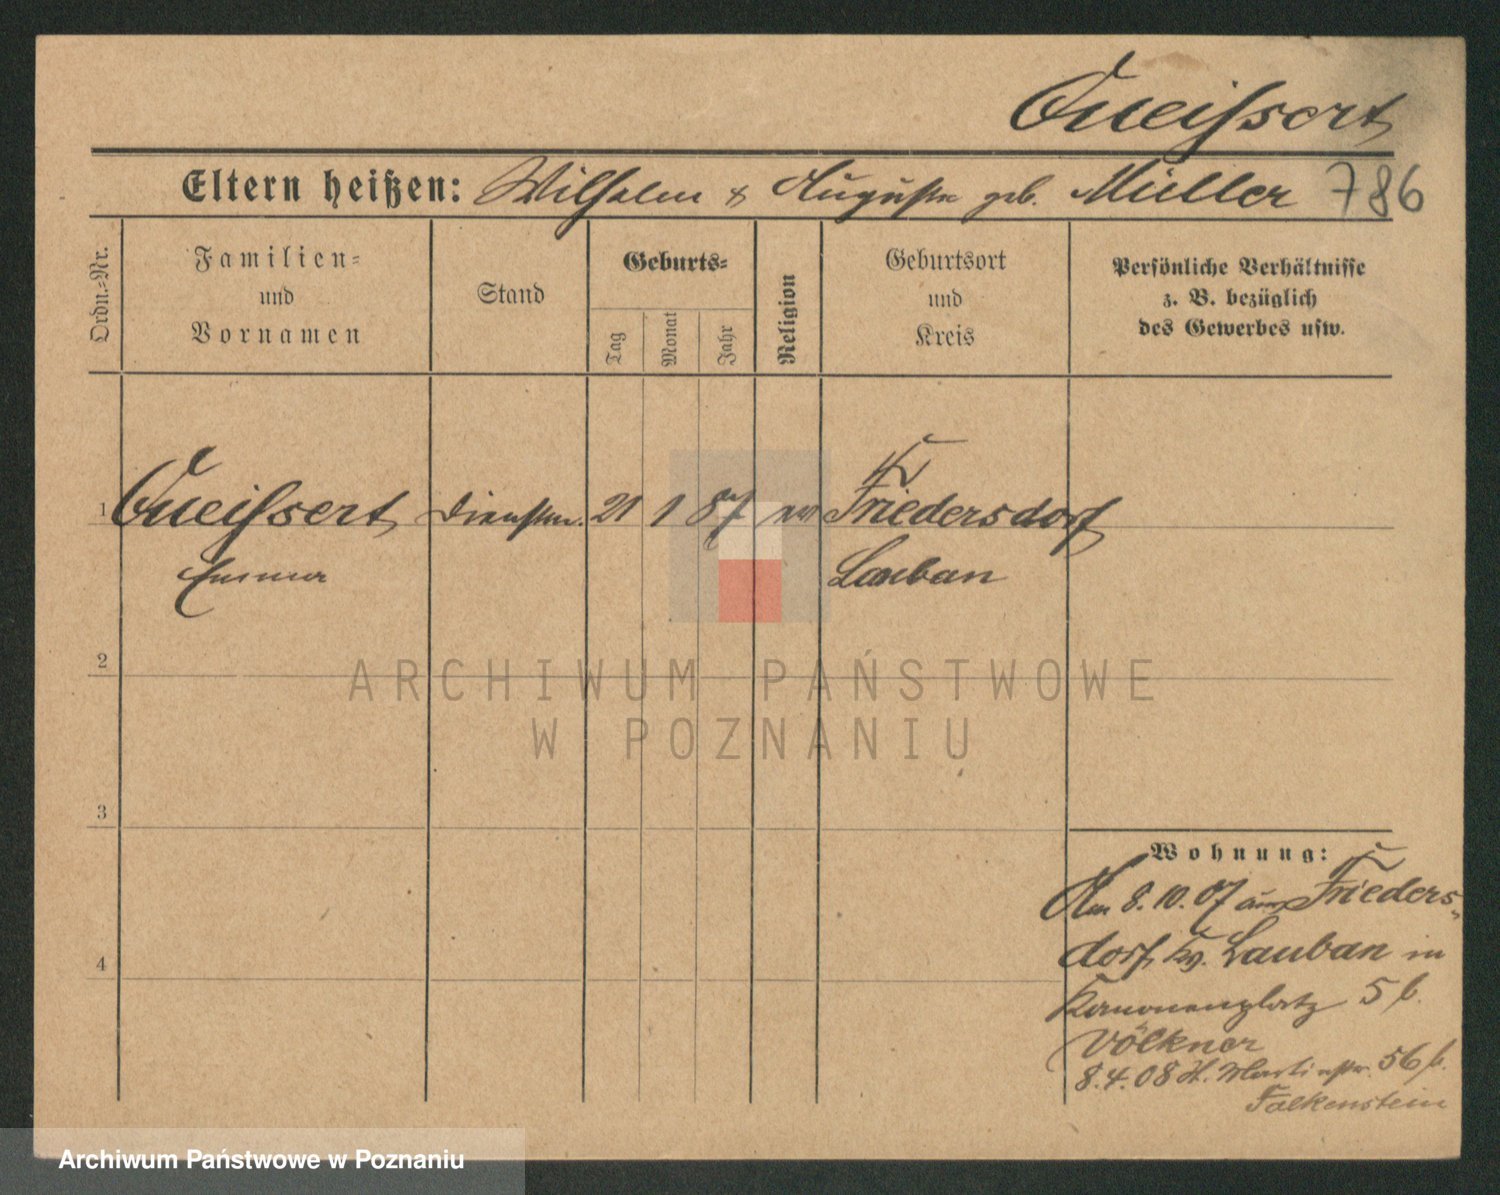 Queißert
Eltern heißen: Wilhelm & Auguste geb. Müller 786
Ordn.-Nr.
Familien-
und
Vornamen
Stand
Geburts-
Tag
Monat
Jahr
Religion
Geburtsort
und
Kreis
Persönliche Verhältnisse
z. B. bezüglich
des Gewerbes usw.
1 Queißert Dienstm. 21 1 87 ev Friedersdorf
Emma Lauban
2
ARCHIWUM PAŃSTWOWE
W POZNANIU
3
4
Wohnung:
Am 8.10.07 aus Frieders-
dorf, Kr. Lauban in
Kanonenplatz 5 b.
Völkner
8.4.08 St. Martinstr. 56 b.
Falkenstein
Archiwum Państwowe w Poznaniu